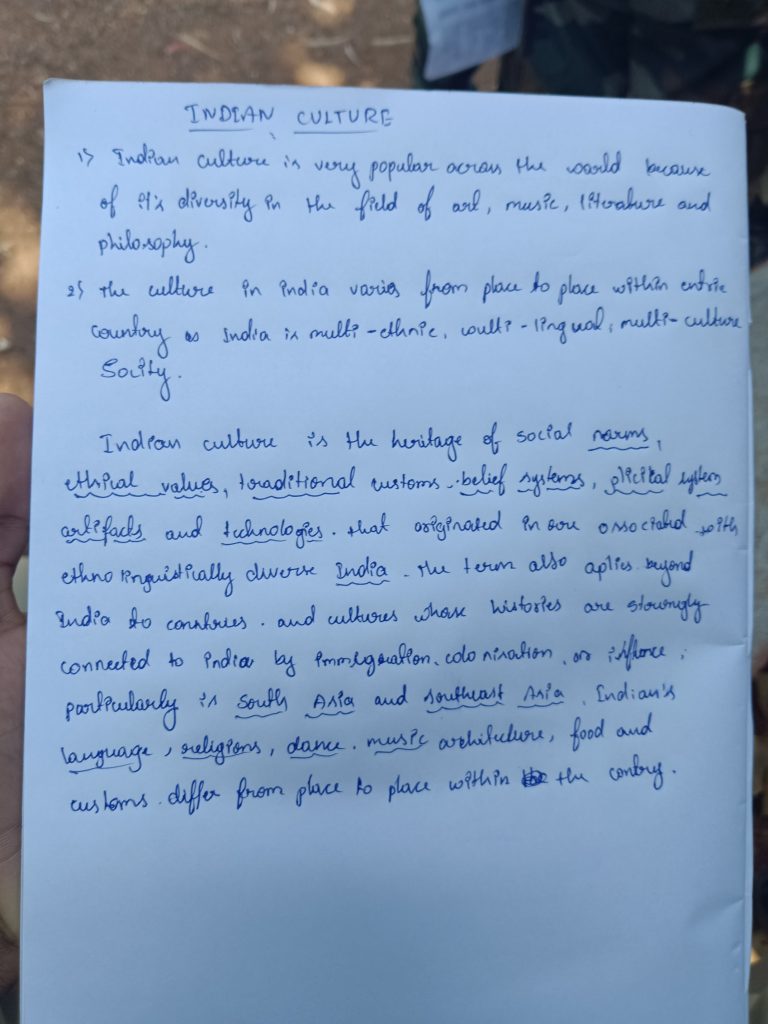 INDIAN CULTURE
1) Indian culture is very popular across the world because
of it's diversity in the field of art, music, literature and
philosophy.
2) The culture in india varies from place to place within entrie
country as India is multi-ethnic, multi-lingual, multi-culture
Socity.
Indian culture is the heritage of social norms,
ethical values, traditional customs. belief systems, plicital system
artifacts and technologies. that originated in are associated with
ethno linguistically diverse India. The term also aplies beyond
India to countries. and cultures whose histories are strongly
connected to india by immigration, colonisation, or inflence,
particularly is South Asia and southeast Asia, Indian's
language, religions, dance. music architecture, food and
customs. differ from place to place within the contry.